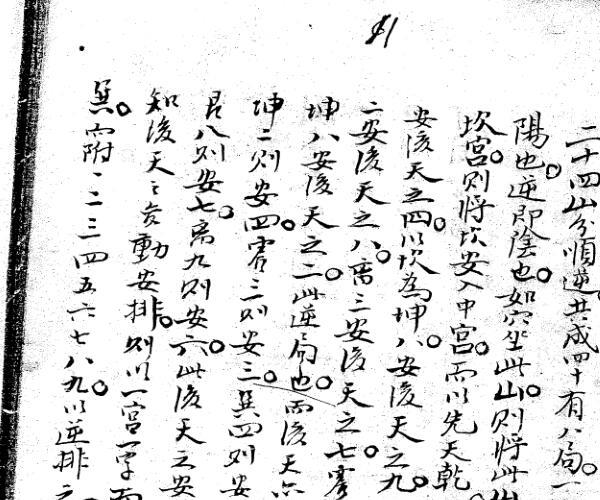 41
二十四山分順逆。共成四十有八局。一
陽也。逆即陰也。如穴坐此山。則將此山
坎宮。則將坎安入中宮。而以先天乾
安後天之四。以坎為坤。八安後天之九。
二安後天之八。离三安後天之七。震
坤八安後天之二。此逆局也。而後天亦
坤二則安四。震三則安三。巽四則安
艮八則安七。离九則安六。此後天之安
知後天之卦動安排。則以一宮一字而
巽。而附一二三四五六七八九。以逆排之